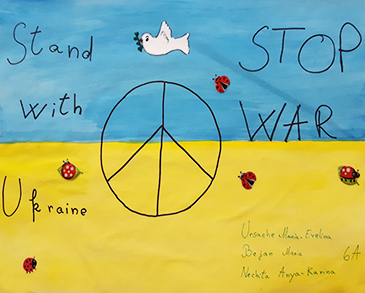 Stand
with
Ukraine
STOP
WAR
Ursache Maria-Evelina
Bejan Maia
Nechita Anya-Karina
6A